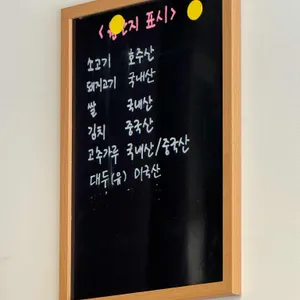 <원산지 표시>
소고기 호주산
돼지고기 국내산
쌀 국내산
김치 중국산
고추가루 국내산/중국산
대두(유) 미국산